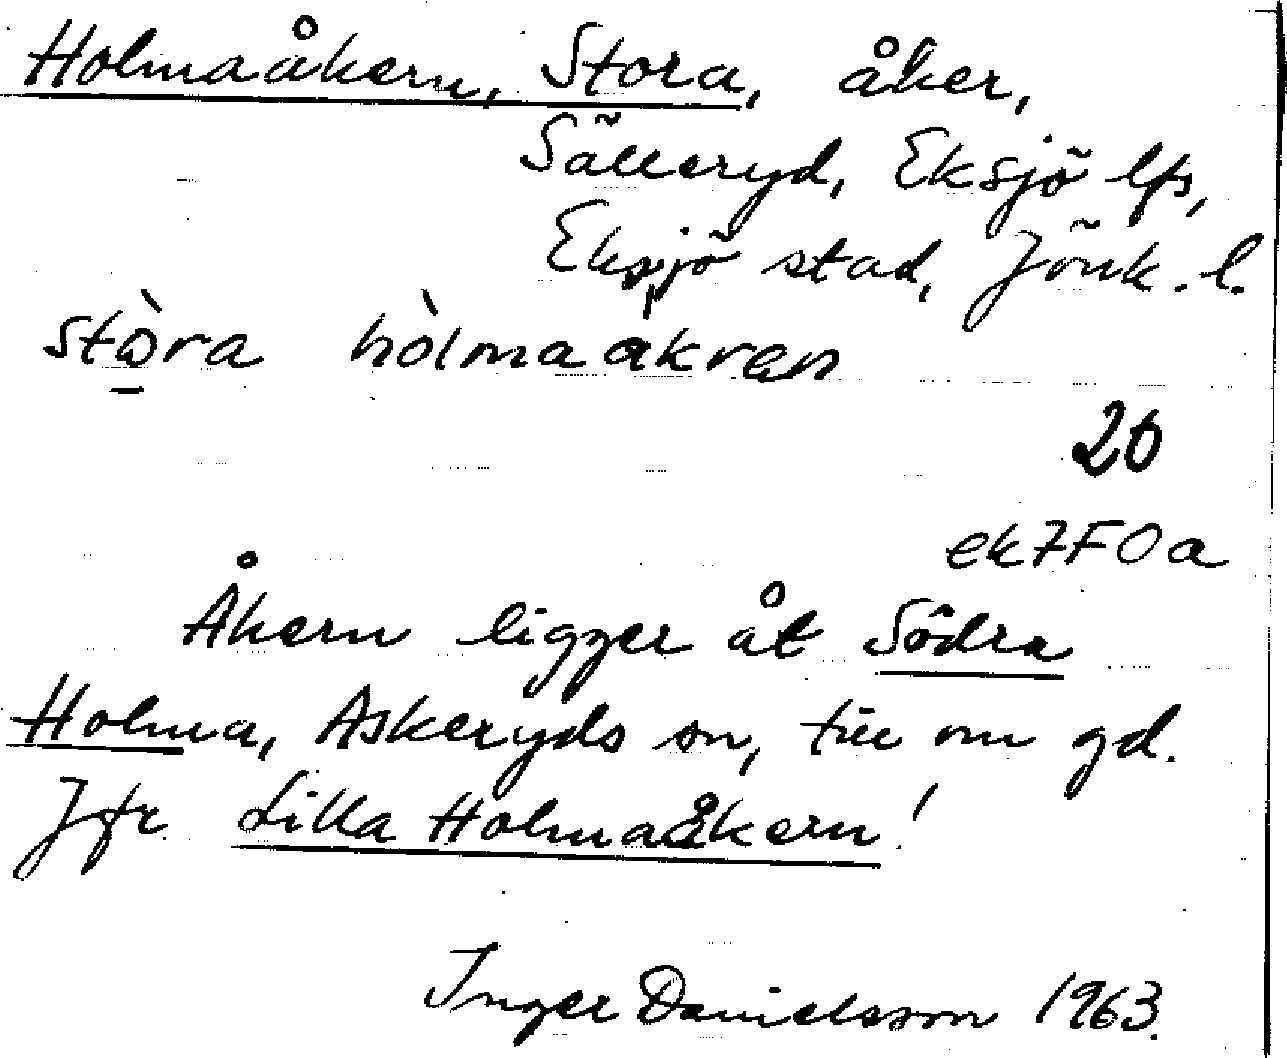 Holmaåkern, Stora, åker,
Sälleryd, Eksjö lfs,
Eksjö stad, Jönk. l.
stòra hòlmaákran
20
ek7F0a
Åkern ligger åt Södra
Holma, Askeryds sn, till om gd.
Jfr Lilla Holmaåkern!
Inger Danielsson 1963.